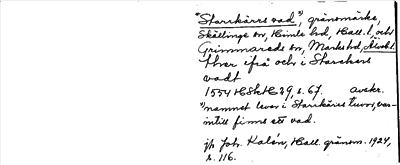 "Starrkärrs vad", gränsmärke,
Skällinge sn, Himle hd, Hall. l. och
Grimmareds sn, Marks hd, Älvsb. l.
thver ifrå och i Starckers
vadt
1554 HSkH 29, s. 67. avskr.
"namnet lever i Starrkärrs tuvor, var-
intill finns ett vad.
jfr Joh. Kalén, Hall. gränsm. 1924,
s. 116.